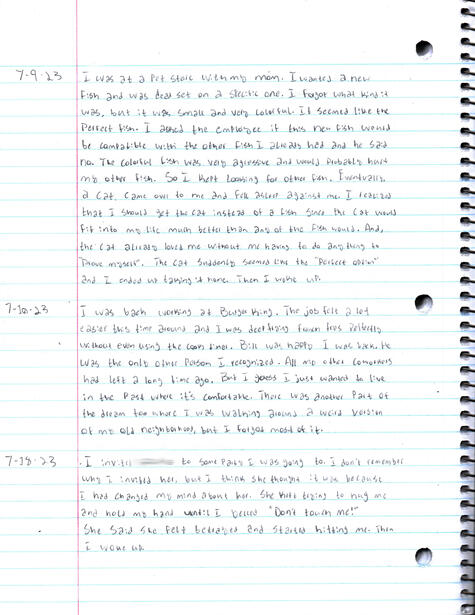 7-9-23 I was at a Pet Store with my mom. I wanted a new
fish and was dead set on a specific one. I forgot what kind it
was, but it was small and very colorful. It seemed like the
Perfect fish. I asked the employee if this new fish would
be compatible with the other fish I already had and he said
no. The colorful fish was very agressive and would probably hurt
my other fish. So I kept looking for other fish. Eventually,
a cat came over to me and fell asleep against me. I realized
that I should get the cat instead of a fish since the cat would
fit into my life much better than any of the fish would. And,
the cat already loved me without me having to do anything to
"Prove myself". The cat suddenly seemed like the "Perfect option"
and I ended up taking it home. Then I woke up.
I was back working at Burger King. The job felt a lot
easier this time around and I was deep frying french fries Perfectly
without even using the cook timer. Bill was happy I was back. He
was the only other Person I recognized. All my other coworkers
had left a long time ago. But I guess I just wanted to live
in the Past where it's comfortable. There was another Part of
the dream too where I was walking around a weird version
of my old neighborhood, but I forgot most of it.
7-18-23 I invited to some Party I was going to. I don't remember
why I invited her, but I think she thought it was because
I had changed my mind about her. She kept trying to hug me
and hold my hand until I yelled "Don't touch me!"
She said she felt betrayed and started hitting me. Then
I woke up.